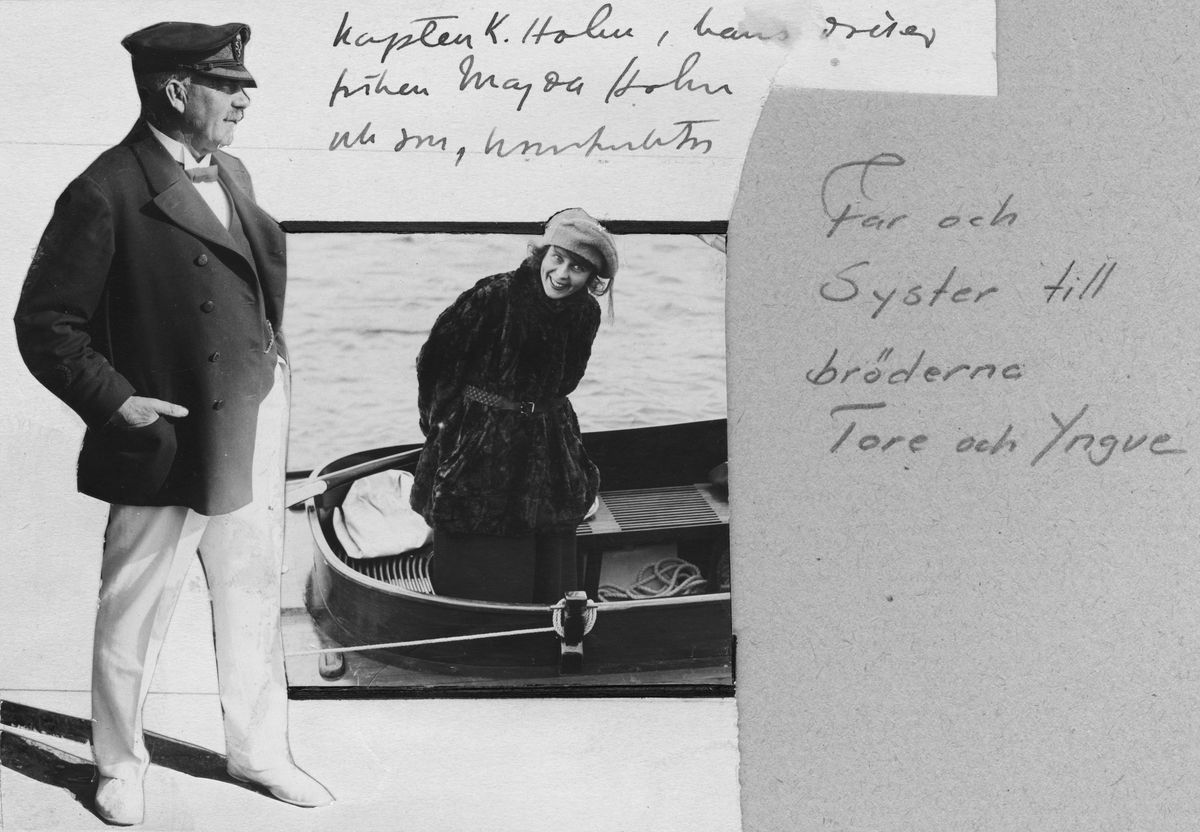 Kapten K. Holm, hans dotter
fröken Majda Holm
och son, konstruktör
Far och
Syster till
bröderna
Tore och Yngve